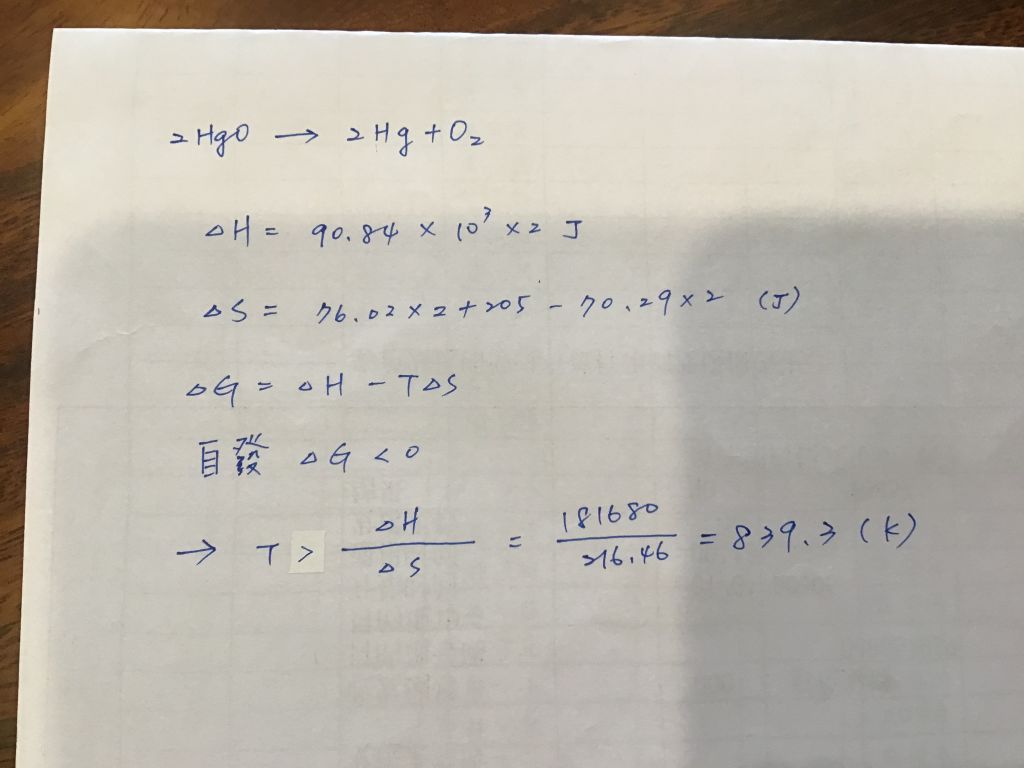 2HgO → 2Hg + O₂
△H = 90.84 × 10³ × 2 J
△S = 76.02 × 2 + 205 - 70.29 × 2 (J)
△G = △H - T△S
自發 △G < 0
→ T > △H/△S = 181680/216.46 = 839.3 (K)